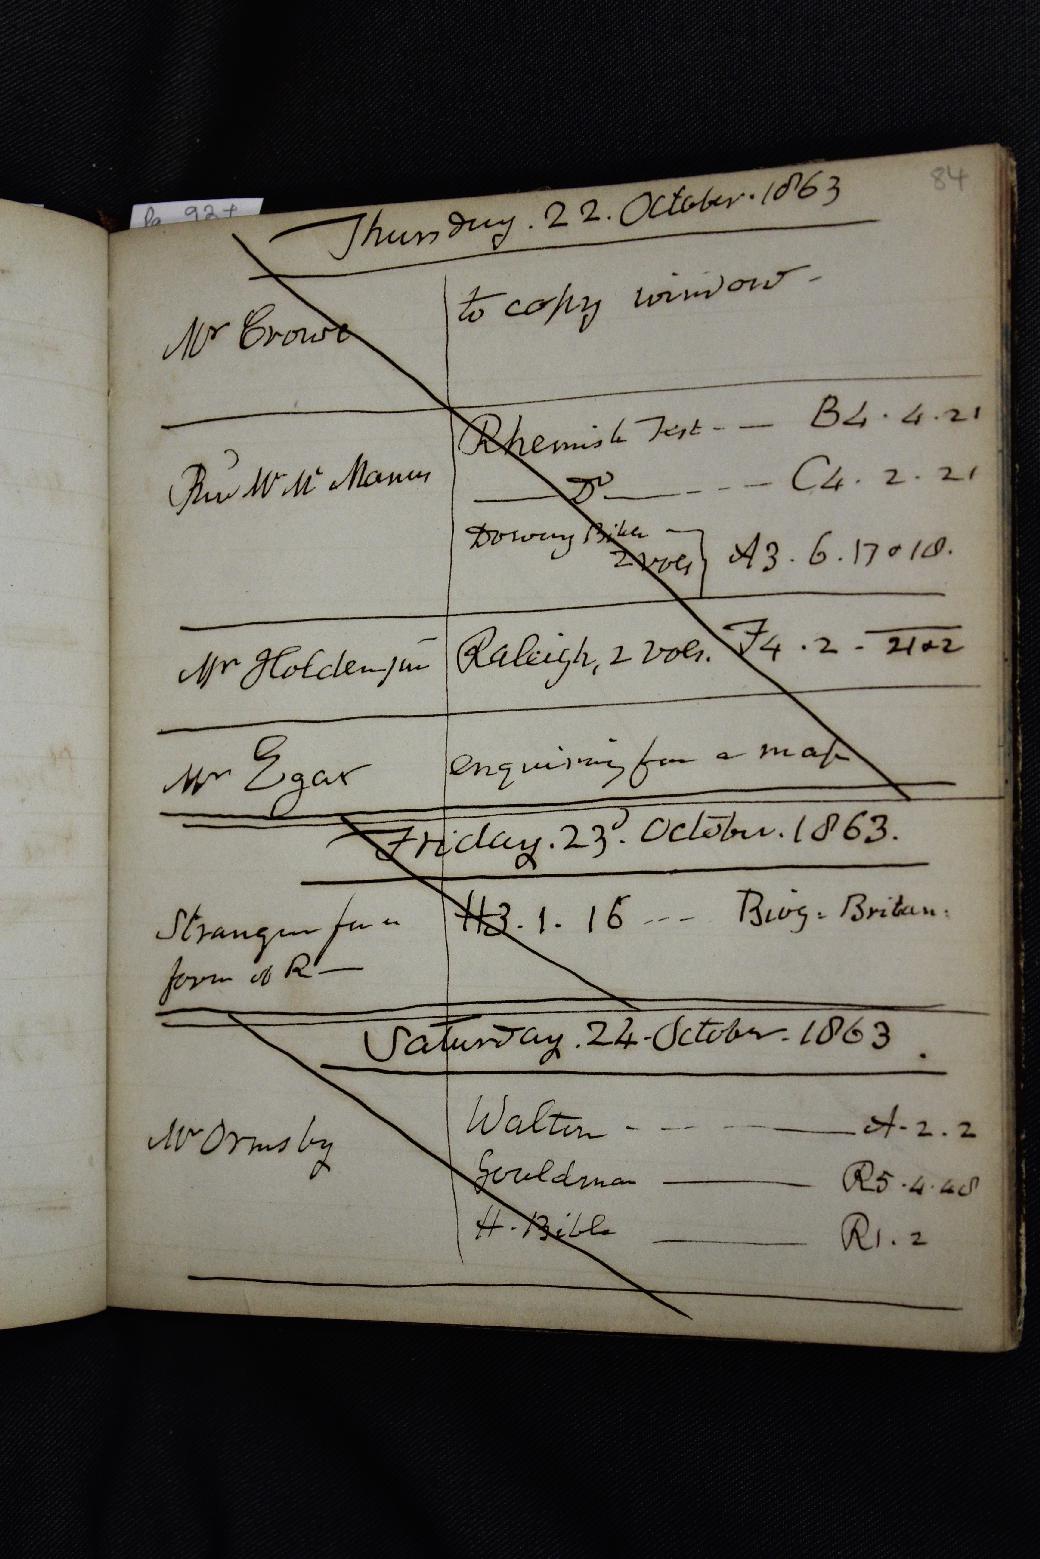 84
Thursday. 22. October. 1863
Mr Crowe to copy window -
Rhemish Test - - — B4. 4. 21
Revd W Mc Manus — Do — - - - C4. 2. 21
Doway Bible
2 vols } A3. 6. 17 & 18.
Mr Holden jun Raleigh, 2 vols. F4. 2 - 21 & 2
Mr Egar enquiring for a map
Friday. 23d. October. 1863.
Stranger for a H3. 1. 16 - - - Biog: Britan:
form of R —
Saturday. 24. October. 1863.
Mr Ormsby Walton - - - — A. 2. 2
Gouldman — R5. 4.
H. Bible — R1. 2